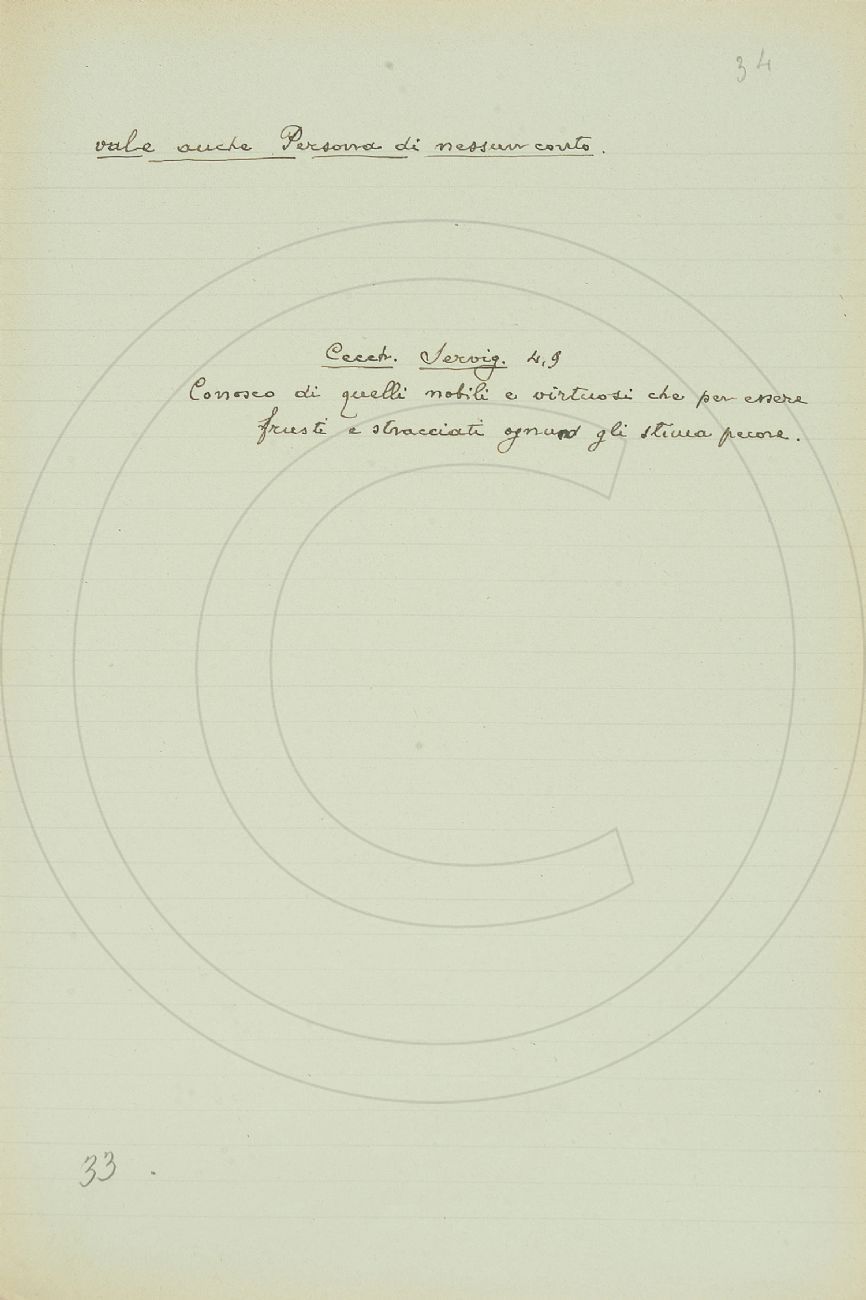 34
vale anche Persona di nessun conto.
Cecch. Servig. 4,9
Conosco di quelli nobili e virtuosi che per essere
frusti e stracciati ognuno gli stima pecore.
33